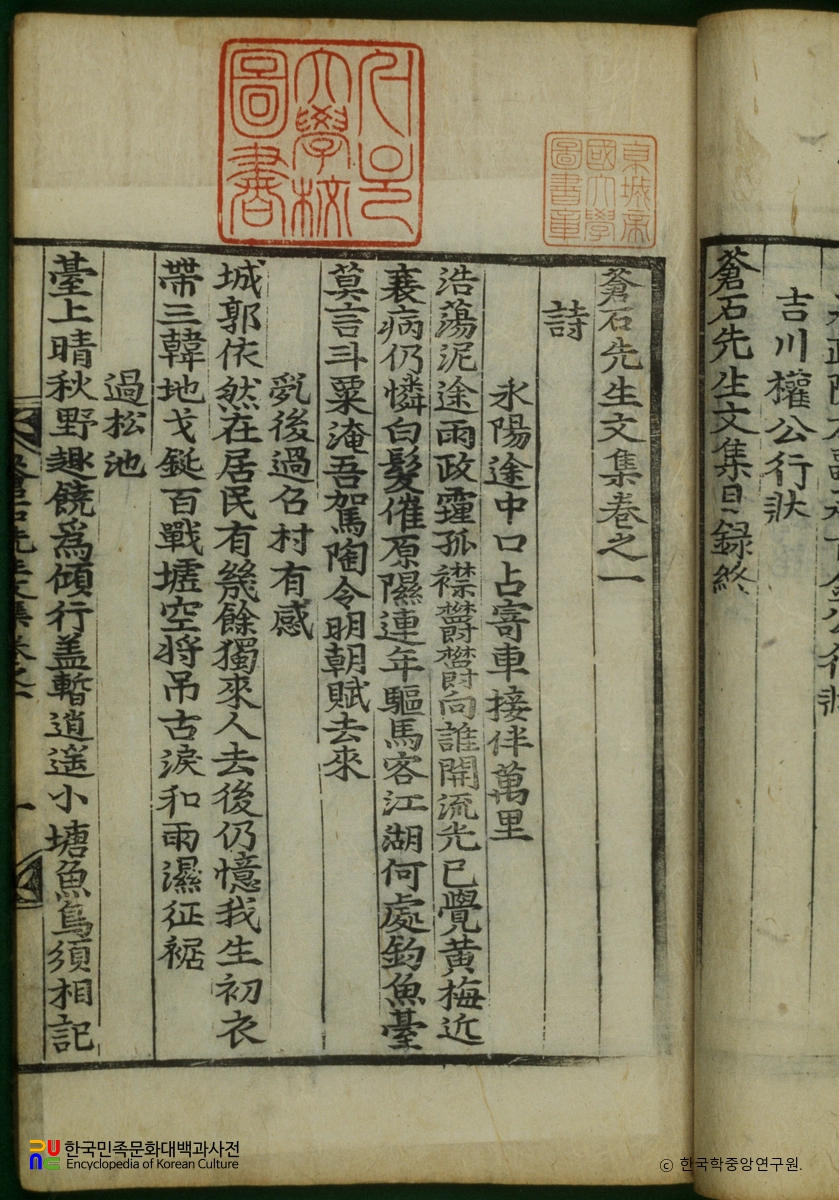 吉川權公行狀
蒼石先生文集目錄終
서울大學校圖書
京城帝國大學圖書章
蒼石先生文集卷之一
詩
永陽途中口占寄車接伴萬里
浩蕩泥途雨政霾孤襟欝欝向誰開流光已覺黃梅近
衰病仍憐白髮催原隰連年驅馬客江湖何處釣魚臺
莫言斗粟淹吾駕陶令明朝賦去來
亂後過召村有感
城郭依然在居民有幾餘獨來人去後仍憶我生初衣
帶三韓地戈鋋百戰墟空將吊古淚和雨濕征裾
過松池
臺上晴秋野趣饒爲傾行盖暫逍遥小塘魚鳥須相記
한국민족문화대백과사전
Encyclopedia of Korean Culture
ⓒ 한국학중앙연구원.